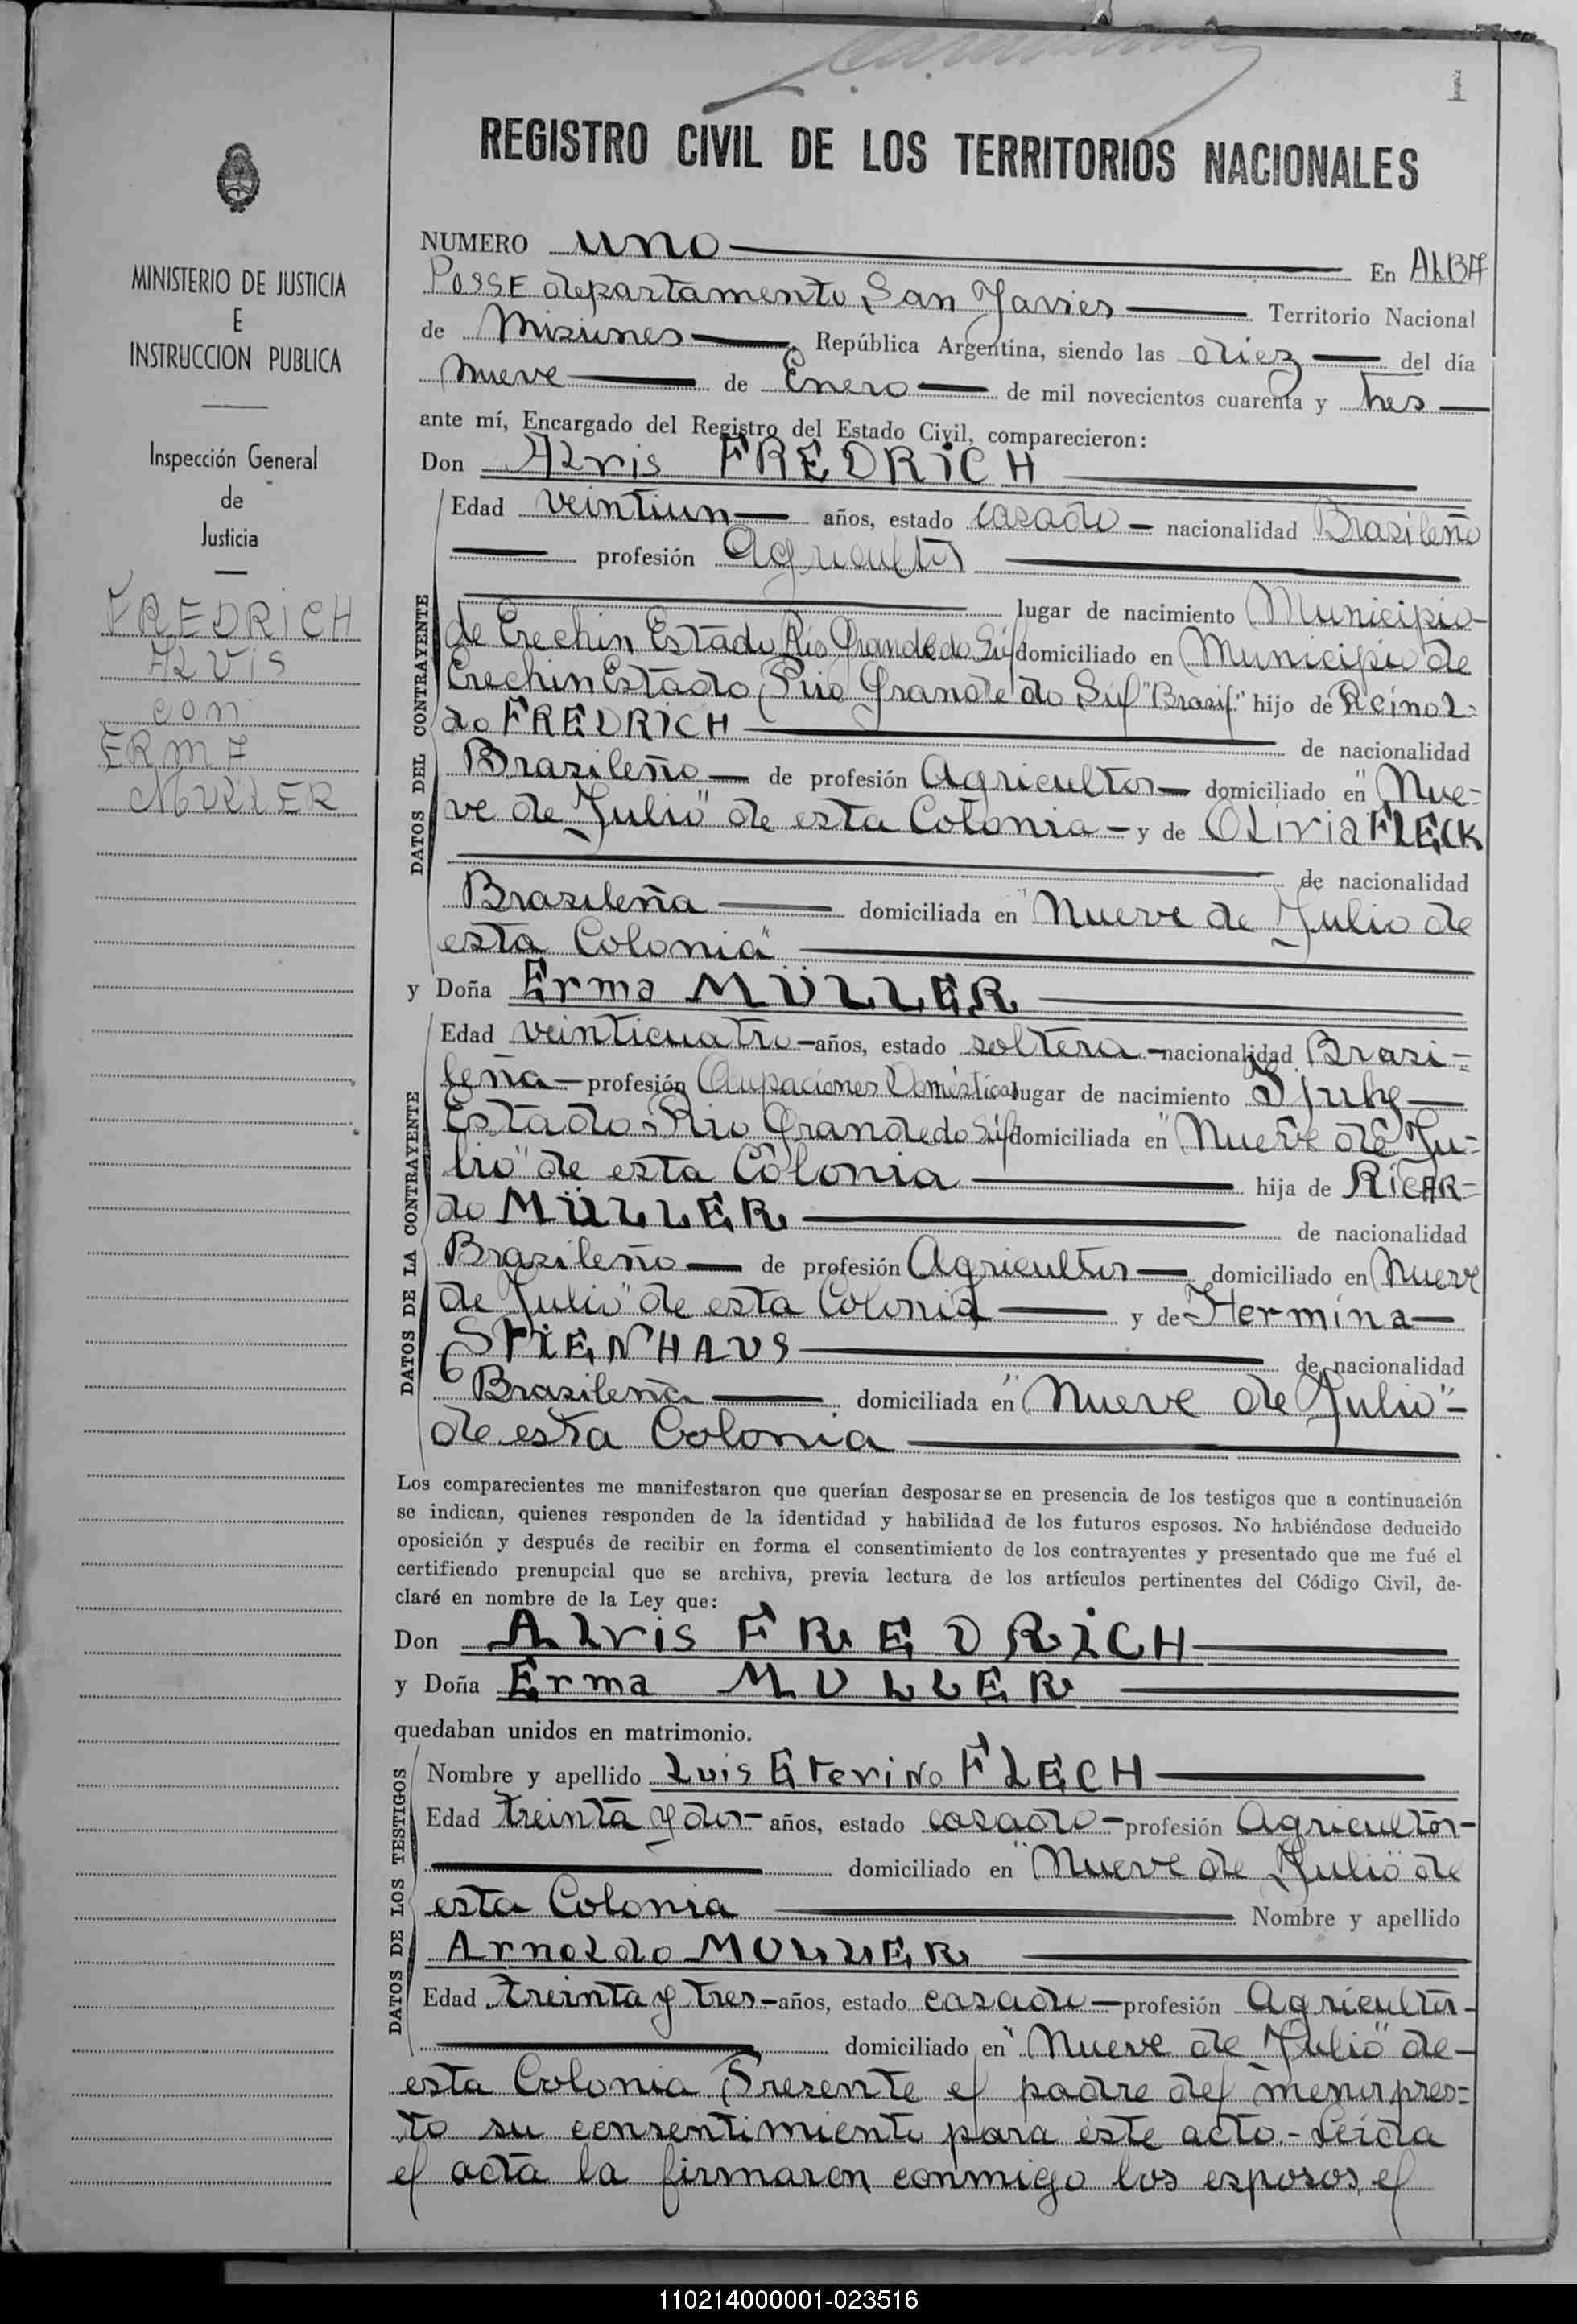 1
REGISTRO CIVIL DE LOS TERRITORIOS NACIONALES
MINISTERIO DE JUSTICIA
E
INSTRUCCION PUBLICA
Inspección General
de
Justicia
FREDRICH
ALVIS
con
ERMA
MULLER
NUMERO uno En ALBA
POSSE departamento San Javier Territorio Nacional
de Misiones República Argentina, siendo las diez del día
nueve de Enero de mil novecientos cuarenta y tres
ante mí, Encargado del Registro del Estado Civil, comparecieron:
Don ALvis FREDRICH
DATOS DEL CONTRAYENTE
Edad veintiun años, estado casado nacionalidad Brasileño
profesión Agricultor
lugar de nacimiento Municipio
de Erechin Estado Rio Grande do Sul domiciliado en Municipio de
Erechin Estado Rio Grande do Sul "Brasil" hijo de Reinol=
do FREDRICH de nacionalidad
Brasileño de profesión Agricultor domiciliado en "Nue=
ve de Julio" de esta Colonia y de OLivia FLECK
de nacionalidad
Brasileña domiciliada en "Nueve de Julio de
esta Colonia"
y Doña Erma MÜLLER
DATOS DE LA CONTRAYENTE
Edad veinticuatro años, estado soltera nacionalidad Brasi=
leña profesión Ocupaciones Domésticas lugar de nacimiento Djuhy
Estado Rio Grande do Sul domiciliada en "Nueve de Ju=
lio" de esta Colonia hija de RiCAR=
do MÜLLER de nacionalidad
Brasileño de profesión Agricultor domiciliado en Nueve
de Julio" de esta Colonia y de Hermina
STIENHAUS de nacionalidad
Brasileña domiciliada en "Nueve de Julio"
de esta Colonia
Los comparecientes me manifestaron que querían desposarse en presencia de los testigos que a continuación
se indican, quienes responden de la identidad y habilidad de los futuros esposos. No habiéndose deducido
oposición y después de recibir en forma el consentimiento de los contrayentes y presentado que me fué el
certificado prenupcial que se archiva, previa lectura de los artículos pertinentes del Código Civil, de-
claré en nombre de la Ley que:
Don ALvis FREDRiCH
y Doña Erma MULLER
quedaban unidos en matrimonio.
DATOS DE LOS TESTIGOS
Nombre y apellido Luis Etevino FLECH
Edad treinta y dos años, estado casado profesión Agricultor
domiciliado en "Nueve de Julio" de
esta Colonia Nombre y apellido
Arnoldo MULLER
Edad treinta y tres años, estado casado profesión Agricultor
domiciliado en "Nueve de Julio" de
esta Colonia Presente el padre del menor pres=
to su consentimiento para este acto.- Leída
el acta la firmaron conmigo los esposos, el
110214000001-023516